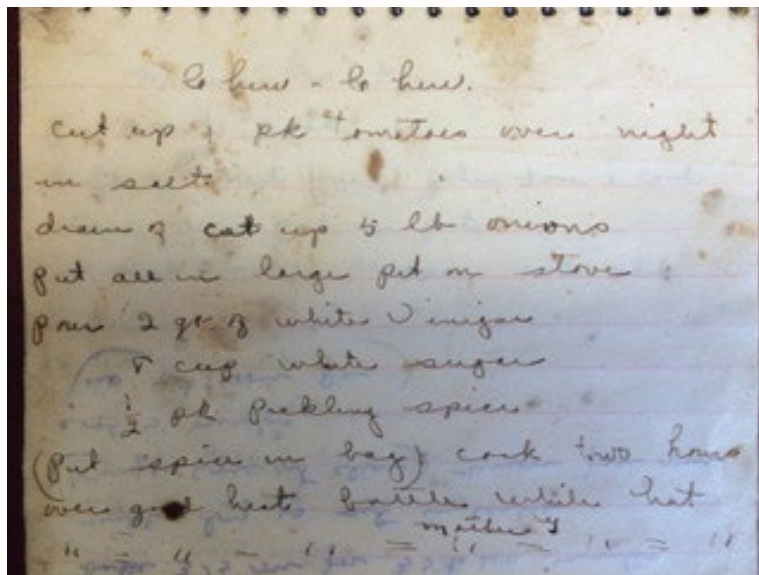 Chew - Chew.
cut up 1 pk tometoes over night
in salt.
drain & cut up 5 lb onions
put all in large pot on stove
pour 2 qr of white Vinigar
8 cup white sugar
1/2 pk Pickling spice
(Put spice in bag) cook two hours
over good heat bottle while hot
Mother's
" = " = " = " = " = "